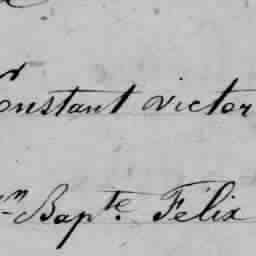 Constant victor
Bapte. Félix